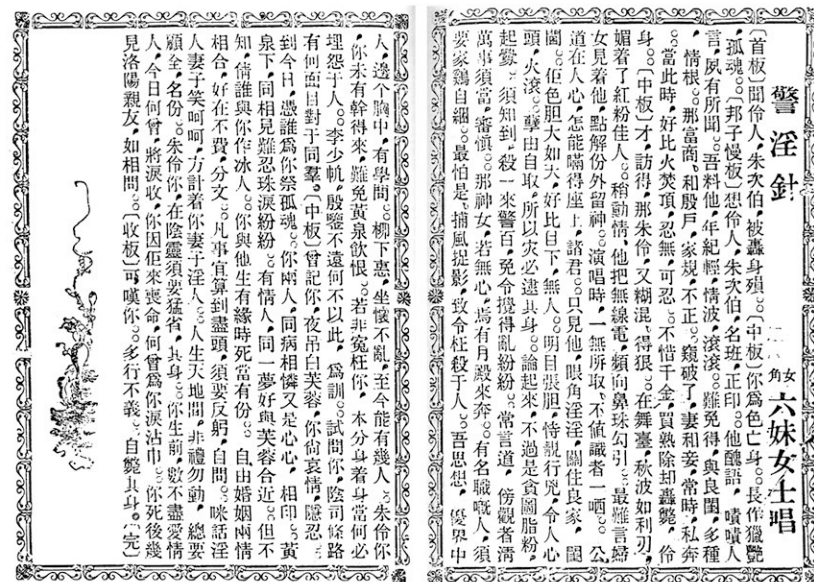 警淫針
女角六妹女士唱
〔首板〕聞伶人、朱次伯、被轟身殞。〔中板〕你為色亡身。長作獵艷
孤魂。〔邦子慢板〕想伶人、朱次伯、名班、正印。他醜語、嘖嘖人
言、夙有所聞。吾料他、年紀輕、情波、滾滾。難免得、與良閨、多種
情根。那富商、和殷戶、家規、不正。窺破了、妻和妾、常時、私奔
。當此時、好比火焚頂、忍無、可忍。不惜千金、買熟除却轟斃、伶
身。〔中板〕才、訪得、那朱伶、又糊混、得狠。在舞臺、秋波如利刃、
媚着了紅粉佳人。稍動情、他把無線電、頻向鼻珠勾引。最難言婦
女見着他、點解份外留神。演唱時、一無所取、不値識者一哂。公
道在人心、怎能瞞得座上、諸君。只見他、眼角淫淫、關住良家、閨
閫。佢色胆大如天、好比目下、無人。明目張胆、恃靚行兇、令人心
頭、火滾。孽由自取、所以災必逮其身。論起來、不過是貪圖脂粉、
起釁。須知到、殺一來警百、免令攪得亂紛紛。常言道、傍觀者淸
萬事須當、審慎。那神女、若無心、焉有月殿來奔。有名職嘅人、須
要家鷄自綑。最怕是、捕風捉影、致令枉殺于人。吾思想、優界中
人、透个胸中、有學問。柳下惠、坐懷不亂、至今能有幾人。朱伶你
、你未有幹得來、難免黃泉飲恨。若非寃枉你、本分身着身當何必
埋怨于人。李少帆、殷鑒不遠何不以此、爲訓。試問你、陰司條路
有何面目對于同羣。〔中板〕曾記你、夜吊白芙蓉、你尙哀情、隱忍、
到今日、憑誰為你祭孤魂。你兩人、同病相憐又是心心、相印。黃
泉下、同相見難忍珠淚紛紛。有情人、同一夢好與芙蓉合近。但不
知、倩誰與你作冰人。你與他生有緣時死當有份。自由婚姻兩情
相合、好在不費、分文。凡事宜算到盡頭、須要反躬、自問。咪話淫
人妻子笑呵呵、方計着你妻子淫人。人生天地間、非禮勿動、總要
顧全、名份。朱伶你、在陰靈須要猛省、其身。你生前、數不盡愛情
人、今日何曾、將淚收、你因佢來喪命、何曾爲你淚沾巾。你死後幾
見洛陽親友、如相問。〔收板〕可嘆你。多行不義、自斃其身。〔完〕